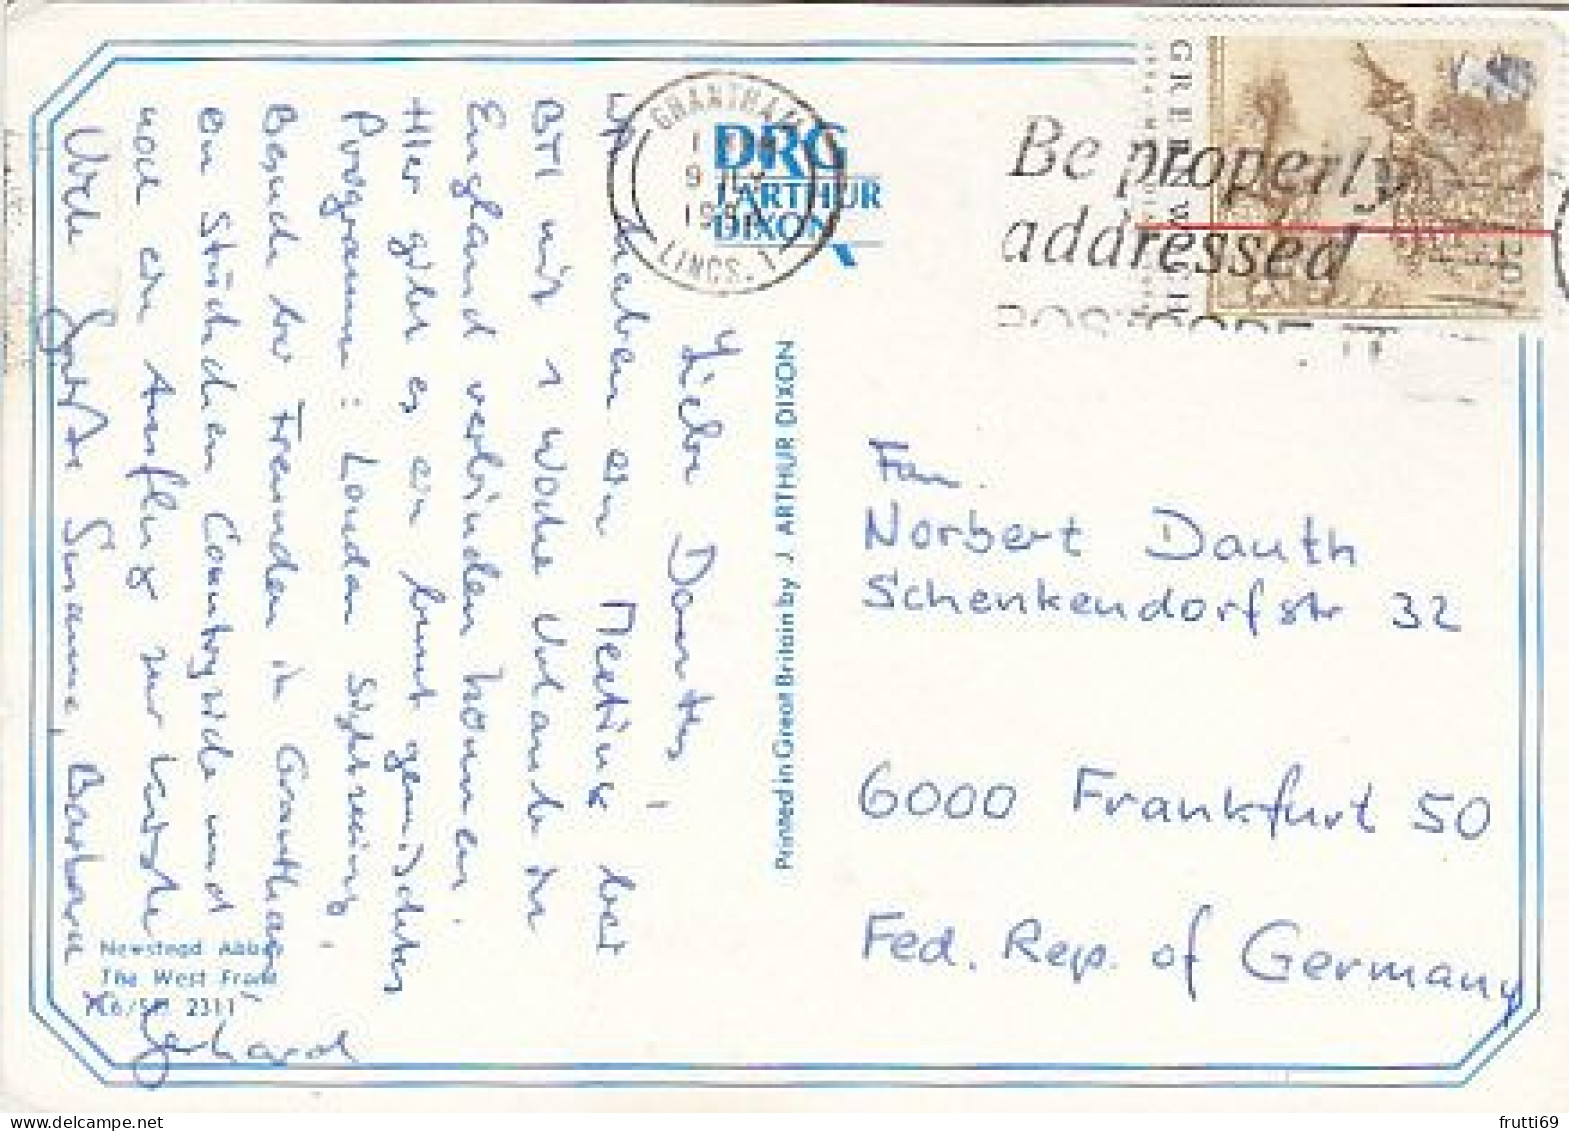 Liebe Dauths,
Wir haben ein Meeting bei
BTI mit 1 Woche Urlaub in
England verbinden können.
Hier gibt es ein bunt gemischtes
Programm: London Sightseeing,
Besuch bei Freunden in Grantham
ein Stückchen Countryside und
noch ein Ausflug zur Küste
Viele Grüße Susanne, Barbara
Gerhard
Newstead Abbey
The West Front
2311
Printed in Great Britain by J. ARTHUR DIXON
DRG
J. ARTHUR
DIXON
GRANTHAM
LINCS.
Be properly
addressed
POSTCODE IT
GREENWICH
Fam.
Norbert Dauth
Schenkendorfstr 32
6000 Frankfurt 50
Fed. Rep. of Germany
frutti69